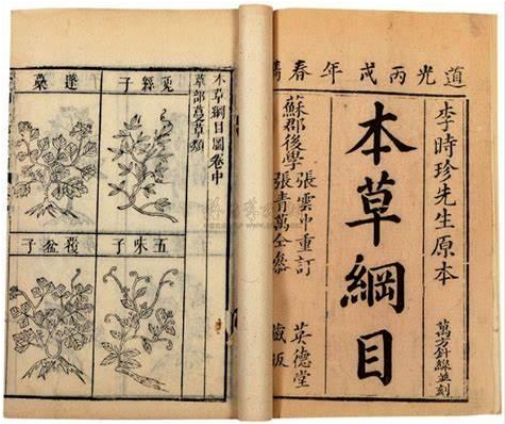 道光丙戌年春
李時珍先生原本
萬方針線並刻
本草綱目
蘇郡後學
張雲中重訂
張青萬仝參
英德堂
藏板
本草綱目圖卷中
草部蔓草類
兔絲子
蓬蘽
五味子
覆盆子